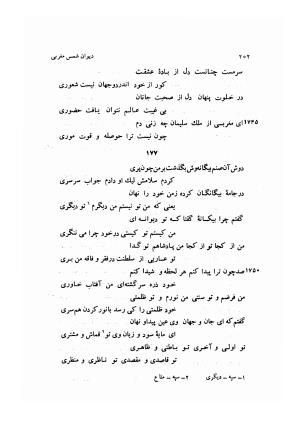 ۲۰۲ دیوان شمس مغربی
سرمست چنانست دل از بادهٔ عشقت
کور از خود اندر دوجهان نیست شعوری
در خلوت پنهان دل از صحبت جانان
بی غیبت عالم نتوان یافت حضوری
۱۷۴۵ ای مغربی از ملك سلیمان چه زنی دم
چون نیست ترا حوصله و قوت موری
۱۷۷
دوش آن صنم بیگانه‌وش بگذشت بر من چون پری
کردم سلامش لیك او دادم جواب سرسری
در جامهٔ بیگانگان کرده زمن خود را نهان
یعنی که من تو نیستم من دیگرم ۱ تو دیگری
گفتم چرا بیگانهٔ گفتا که تو دیوانه ای
من کیستم تو کیستی در خود چرا می ننگری
من از کجا تو از کجا من پادشاهم تو گدا
تو عاریی از سلطنت در فقر و فاقه من بری
۱۷۵۰ صد چون ترا پیدا کنم هر لحظه و شیدا کنم
خود ذره سرگشته‌ای من آفتاب خاوری
من فرضم و تو سنتی من نورم و تو ظلمتی
خود ظلمتی را کی رسد با نور کردن همسری
گفتم که ای جان و جهان وی عین پیدا و نهان
ای مایهٔ سود و زیان وی تو ۲ قماش و مشتری
تو اولی و آخری تو باطنی و ظاهری
تو قاصدی و مقصدی تو ناظری و منظری
۱ــ سپه ــ دیگری ۲ــ سپه ــ متاع